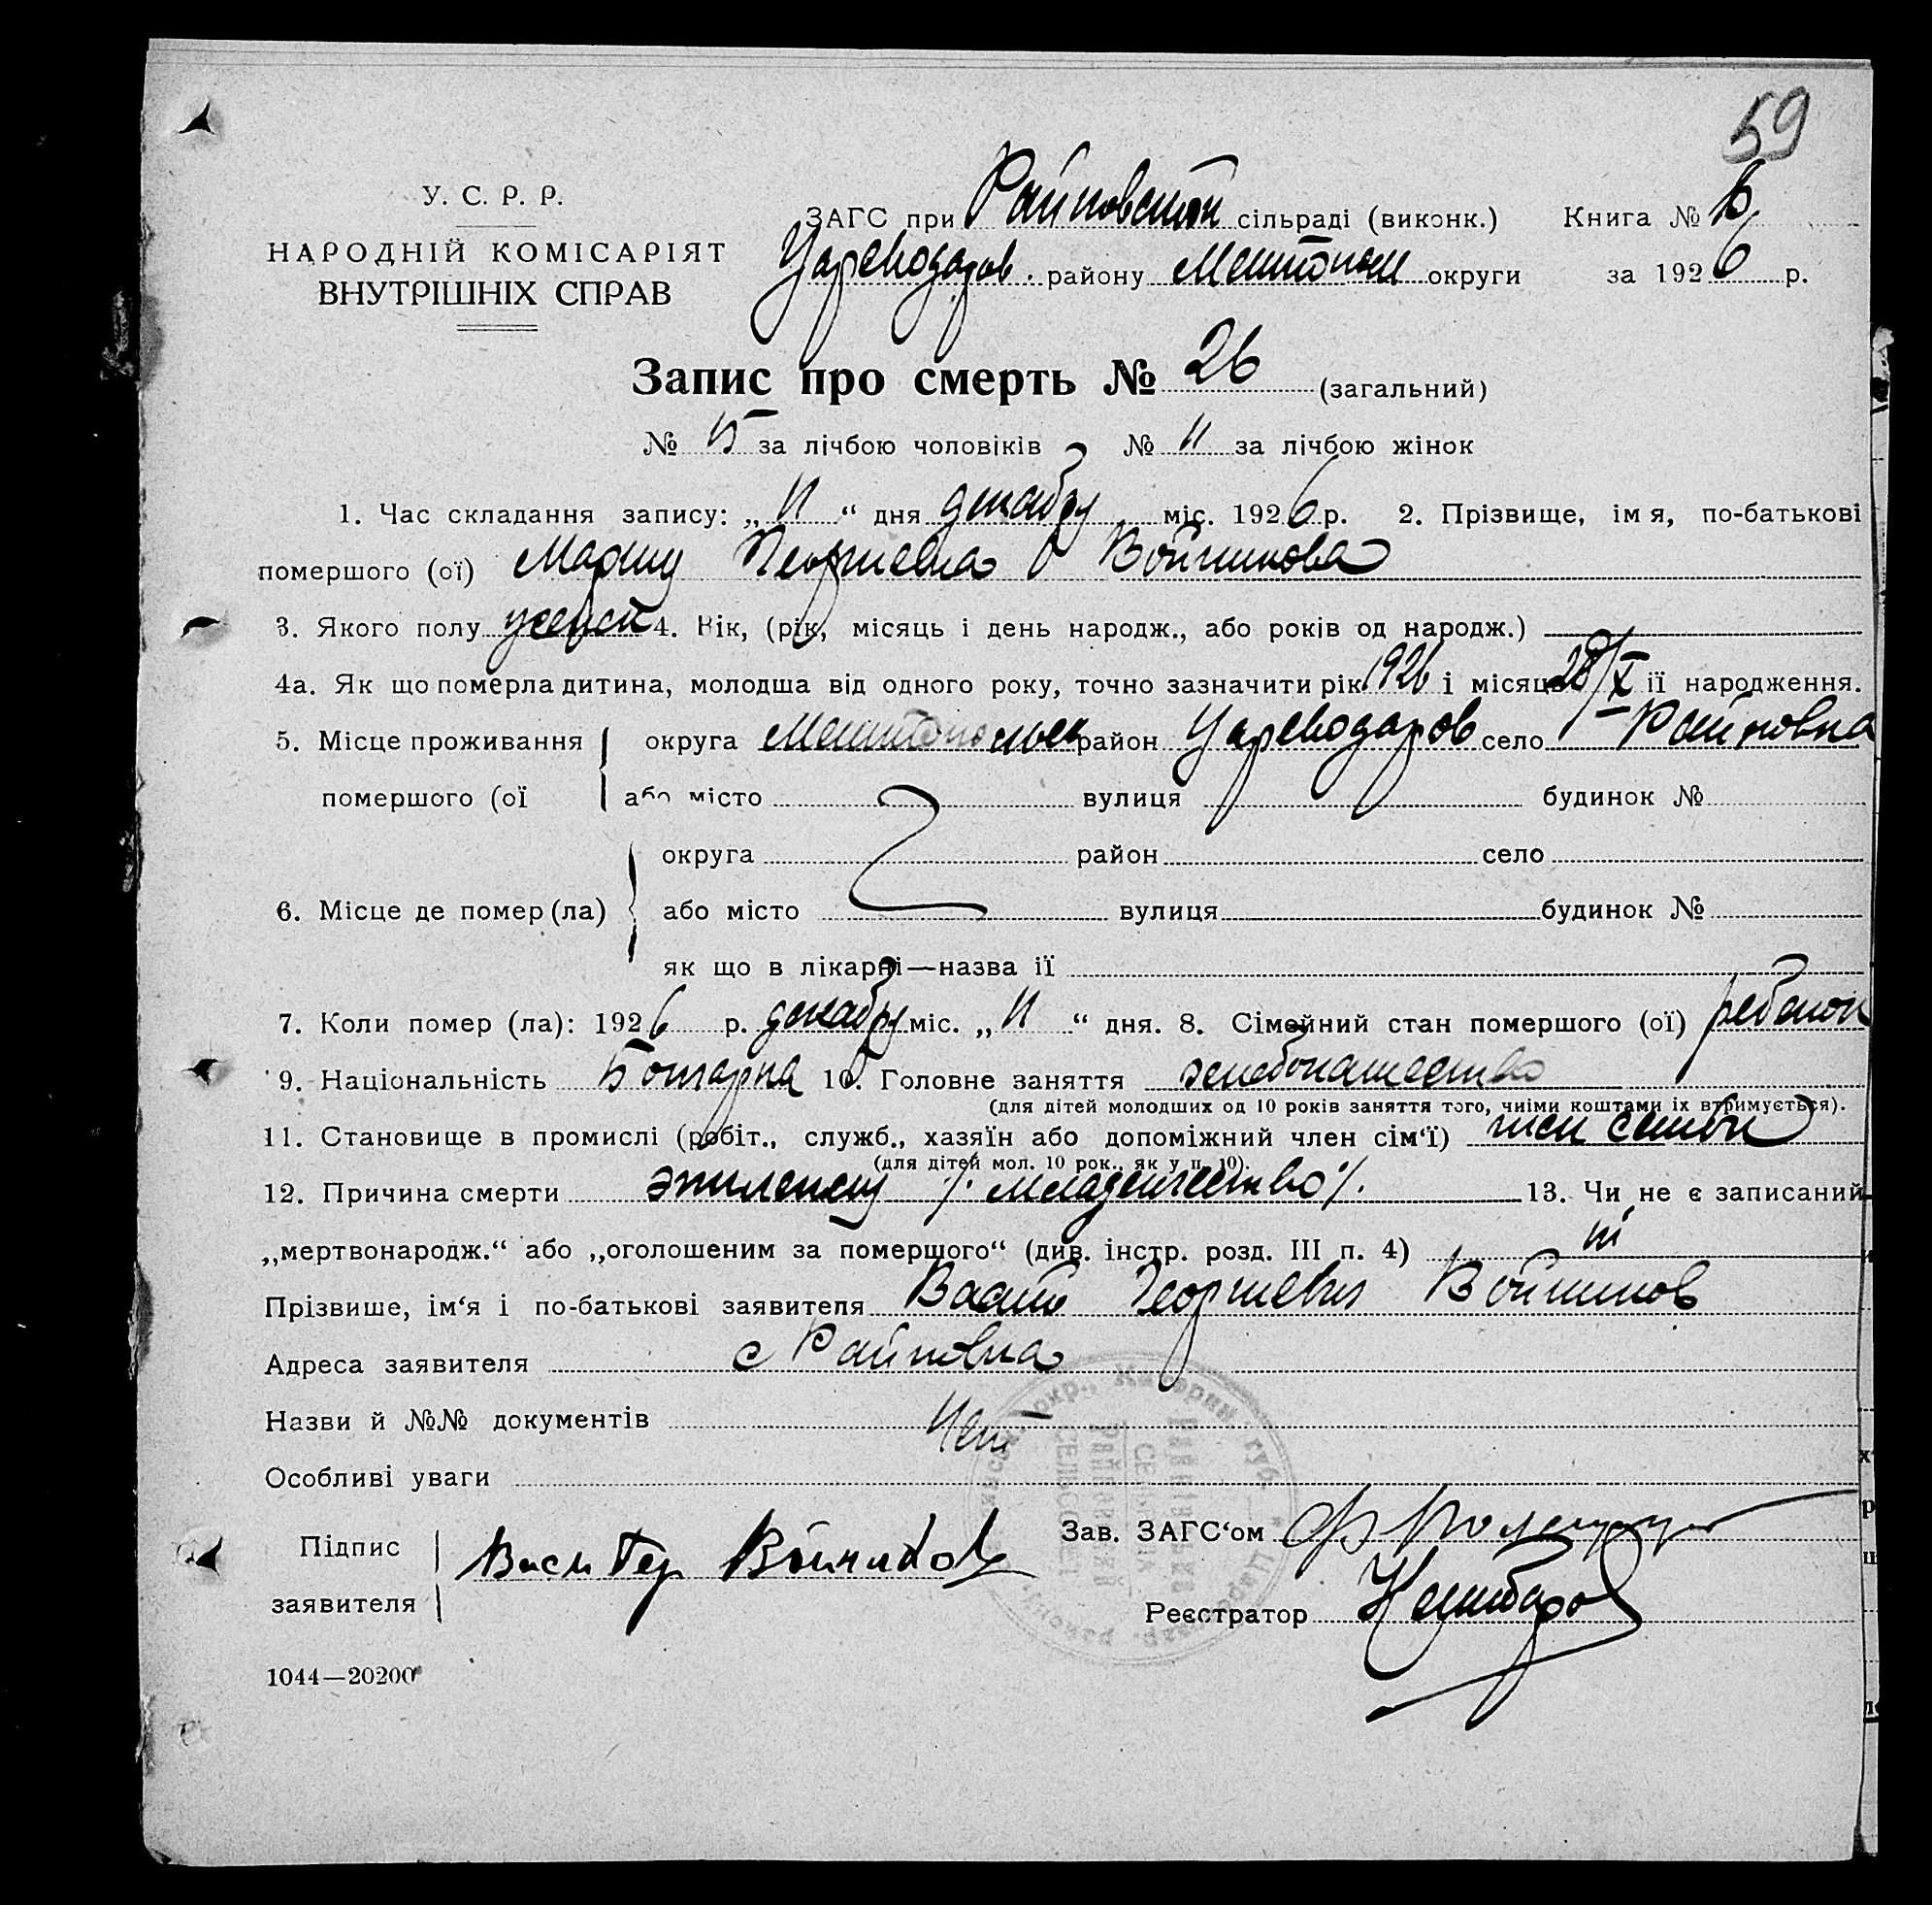 59
У. С. Р. Р.
НАРОДНІЙ КОМІСАРІЯТ
ВНУТРІШНІХ СПРАВ
ЗАГС при Райновской сільраді (виконк.) Книга №
Цареводаров. району Мелитопол округи за 1926 р.
Запис про смерть № 26 (загальний)
№ 15 за лічбою чоловіків № 11 за лічбою жінок
1. Час складання запису: „11“ дня декабря міс. 1926 р. 2. Прізвище, імя, по-батькові
помершого (ої) Мария Георгиевна Войникова
3. Якого полу женск 4. Вік, (рік, місяць і день народж., або років од народж.)
4а. Як що померла дитина, молодша від одного року, точно зазначити рік 1926 і місяць 28/X її народження.
5. Місце проживання помершого (ої округа Мелитопольск район Цареводаров село Райновка
або місто вулиця будинок №
6. Місце де помер (ла) округа район село
або місто вулиця будинок №
як що в лікарні—назва її
7. Коли помер (ла): 1926 р. декабря міс. „11“ дня. 8. Сімейний стан помершого (ої) ребенок
9. Національність Болгарка 10. Головне заняття хлебопашество
(для дітей молодших од 10 років заняття того, чиїми коштами їх втримується).
11. Становище в промислі (робіт., служб., хазяїн або допоміжний член сім‘ї) член семьи
(для дітей мол. 10 рок., як у п. 10).
12. Причина смерти эпилепсия /. младенчество /. 13. Чи не є записаний
„мертвонародж.“ або „оголошеним за померщого“ (див. інстр. розд. III п. 4) ні
Прізвише, ім‘я і по-батькові заявителя Васил Георгиевич Войников
Адреса заявителя с Райновка
Назви й №№ документів Нет
Особливі уваги
Підпис заявителя Васил Гер Войников
Зав. ЗАГС‘ом
Реєстратор
1044—20200